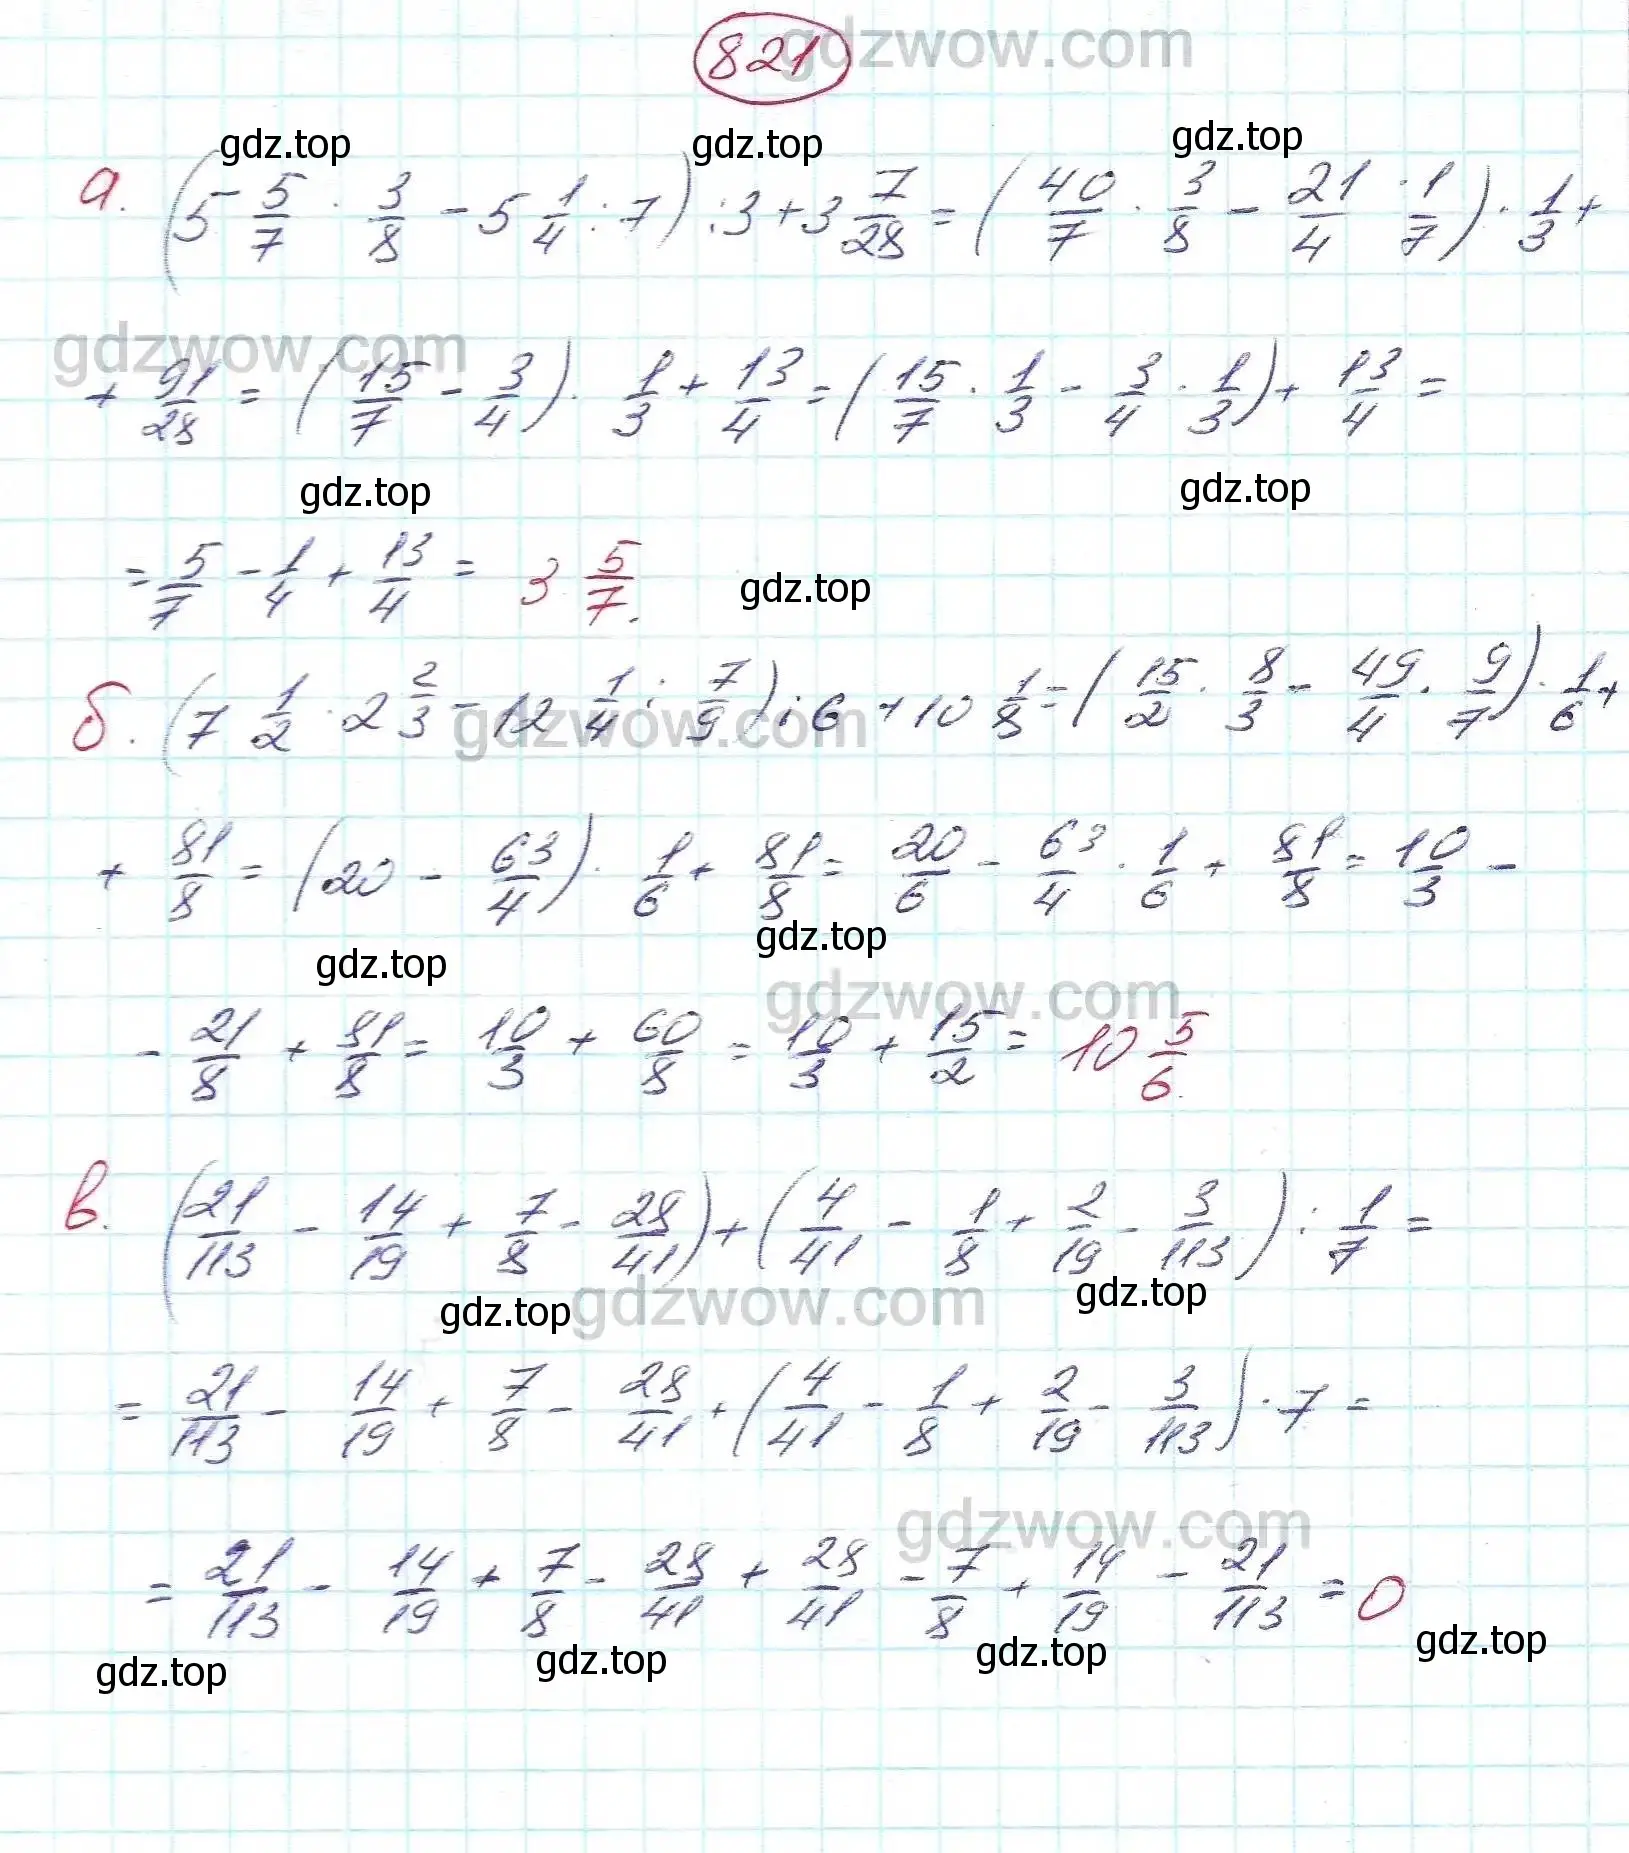 821 gdzwow.com
gdz.top gdz.top gdz.top
а. (5 5/7 · 3/8 - 5 1/4 : 7) : 3 + 3 7/28 = (40/7 · 3/8 - 21/4 · 1/7) · 1/3 +
gdzwow.com
+ 91/28 = (15/7 - 3/4) · 1/3 + 13/4 = (15/7 · 1/3 - 3/4 · 1/3) + 13/4 =
gdz.top gdz.top
= 5/7 - 1/4 + 13/4 = 3 5/7.
gdz.top
б. (7 1/2 · 2 2/3 - 12 1/4 : 7/9) : 6 + 10 1/8 = (15/2 · 8/3 - 49/4 · 9/7) · 1/6 +
gdzwow.com
+ 81/8 = (20 - 63/4) · 1/6 + 81/8 = 20/6 - 63/4 · 1/6 + 81/8 = 10/3 -
gdz.top gdz.top
gdzwow.com
- 21/8 + 81/8 = 10/3 + 60/8 = 10/3 + 15/2 = 10 5/6.
в. (21/113 - 14/19 + 7/8 - 28/41) + (4/41 - 1/8 + 2/19 - 3/113) : 1/7 =
gdz.top gdzwow.com gdz.top
= 21/113 - 14/19 + 7/8 - 28/41 + (4/41 - 1/8 + 2/19 - 3/113) · 7 =
gdzwow.com
= 21/113 - 14/19 + 7/8 - 28/41 + 28/41 - 7/8 + 14/19 - 21/113 = 0
gdz.top gdz.top gdz.top gdz.top